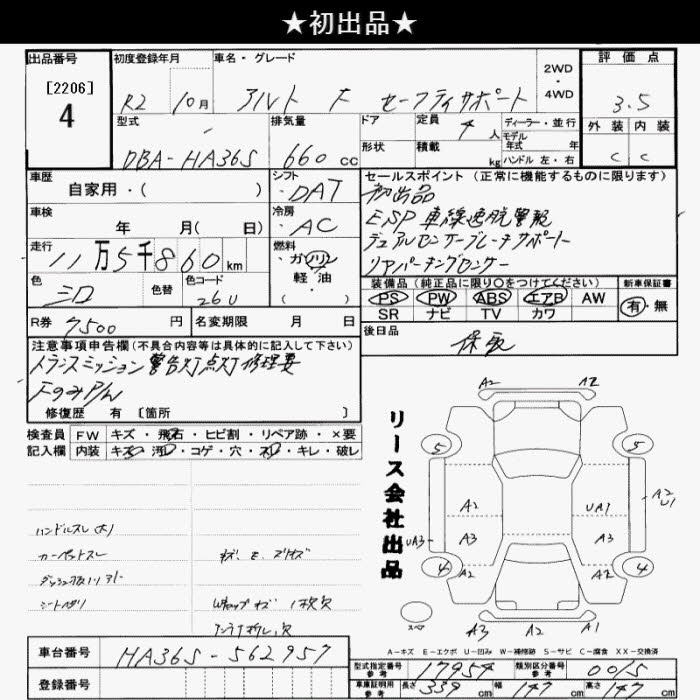 ★初出品★
出品番号 初度登録年月 車名・グレード 2WD・4WD 評価点
[2206]
4
R2 10月 アルト F セーフティサポート 3.5
型式 排気量 ドア 定員 4人 ディーラー・並行 外装 内装
DBA-HA36S 660cc 形状 積載 kg モデル年式 年 ハンドル 左・右 C C
車歴 シフト セールスポイント (正常に機能するものに限ります)
自家用・( ) DAT 初出品
車検 冷房 ESP 車線逸脱警報
年 月( 日) AC デュアルセンサーブレーキサポート
走行 燃料 リアパーキングセンサー
11万5千860km ガソリン
軽油・
( )
色 色替 色コード 装備品 (純正品に限り○をつけてください) 新車保証書
シロ 26U PS PW ABS エアB AW 有・無
SR ナビ TV カワ
R券 7500円 名変期限 月 日 後日品
注意事項申告欄(不具合内容等は具体的に記入して下さい) 保取
トランスミッション警告灯点灯 修理要
FのみP/W
修復歴 有 〔箇所 〕
検査員 FW キズ・飛石・ヒビ割・リペア跡・×要
記入欄 内装 キズ・汚・コゲ・穴・スレ・キレ・破レ
リース会社出品
A2 A2
5 5
A2 UA1 A2 U1
UA3 A3 A3
4 A2 A2 4
スペア A3 A2 A1
ハンドルスレ(大)
カーペットスレ
シートヘタリ
A-キズ E-エクボ U-凹み W-補修跡 S-サビ C-腐食 XX-交換済
車台番号 HA36S-562957
型式指定番号 参考 17954 類別区分番号 参考 0015
登録番号
車庫証明用 参考 長さ 339cm 幅 147cm 高さ 147cm